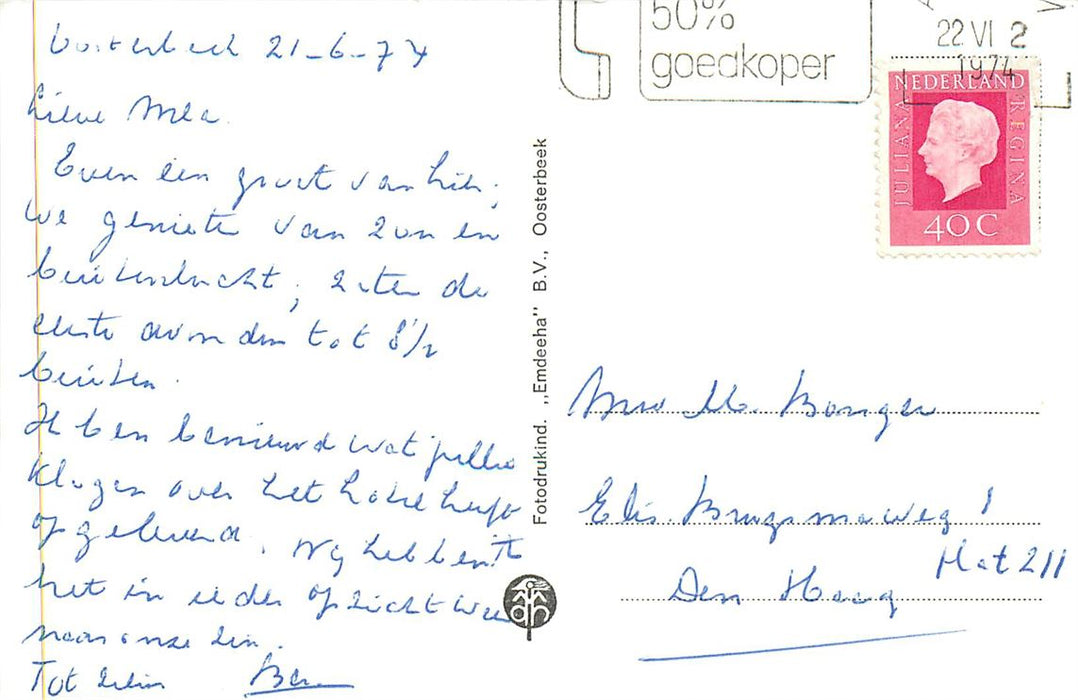 Oosterbeek 21-6-74
Lieve Mea.
Even een groet van hier.
We genieten van zon en
buitenlucht, zitten de
eerste avonden tot 8½
buiten.
Ik ben benieuwd wat jullie
klagen over het hotel heeft
opgeleverd. Wij hebben 't
het in ieder opzicht weer
naar onze zin.
Tot ziens Ben
Fotodrukind. „Emdeeha" B.V., Oosterbeek
50%
goedkoper
22 VI 2
1974
NEDERLAND
JULIANA REGINA
40C
Mw M. Bonger
Elis. Bruzsmaweg 1
Flat 211
Den Haag